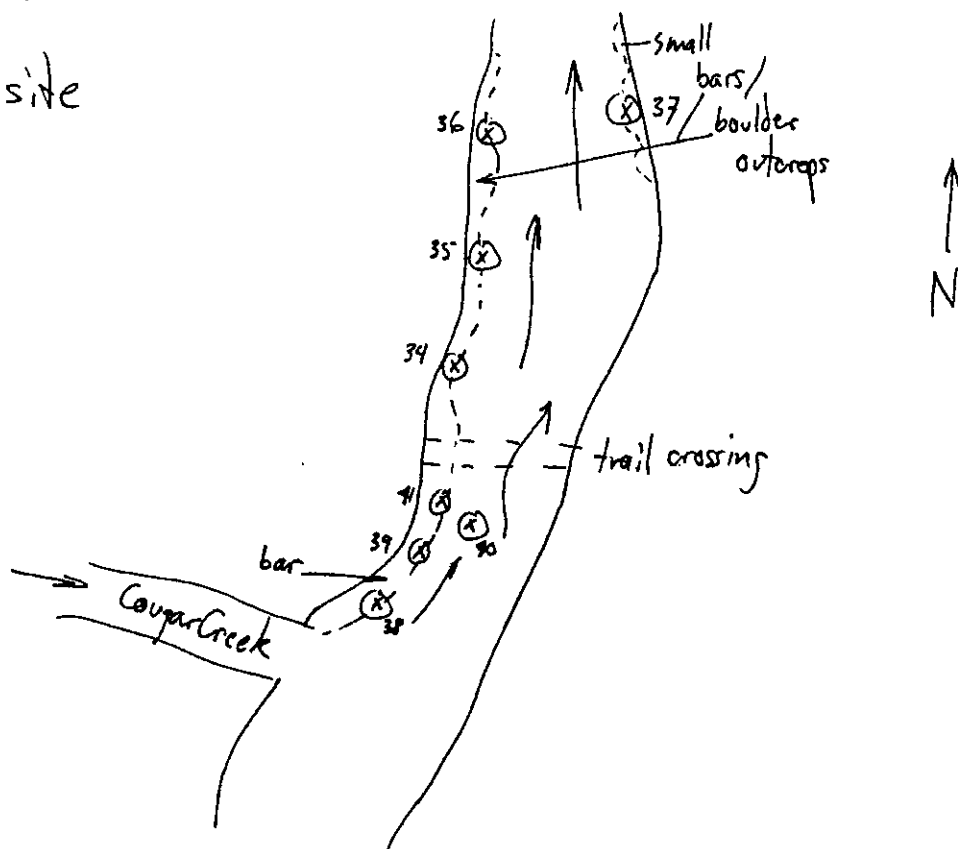 site
small
bars/
boulder
outcrops
36
37
35
34
N
trail crossing
41
39
40
bar
38
Cougar Creek